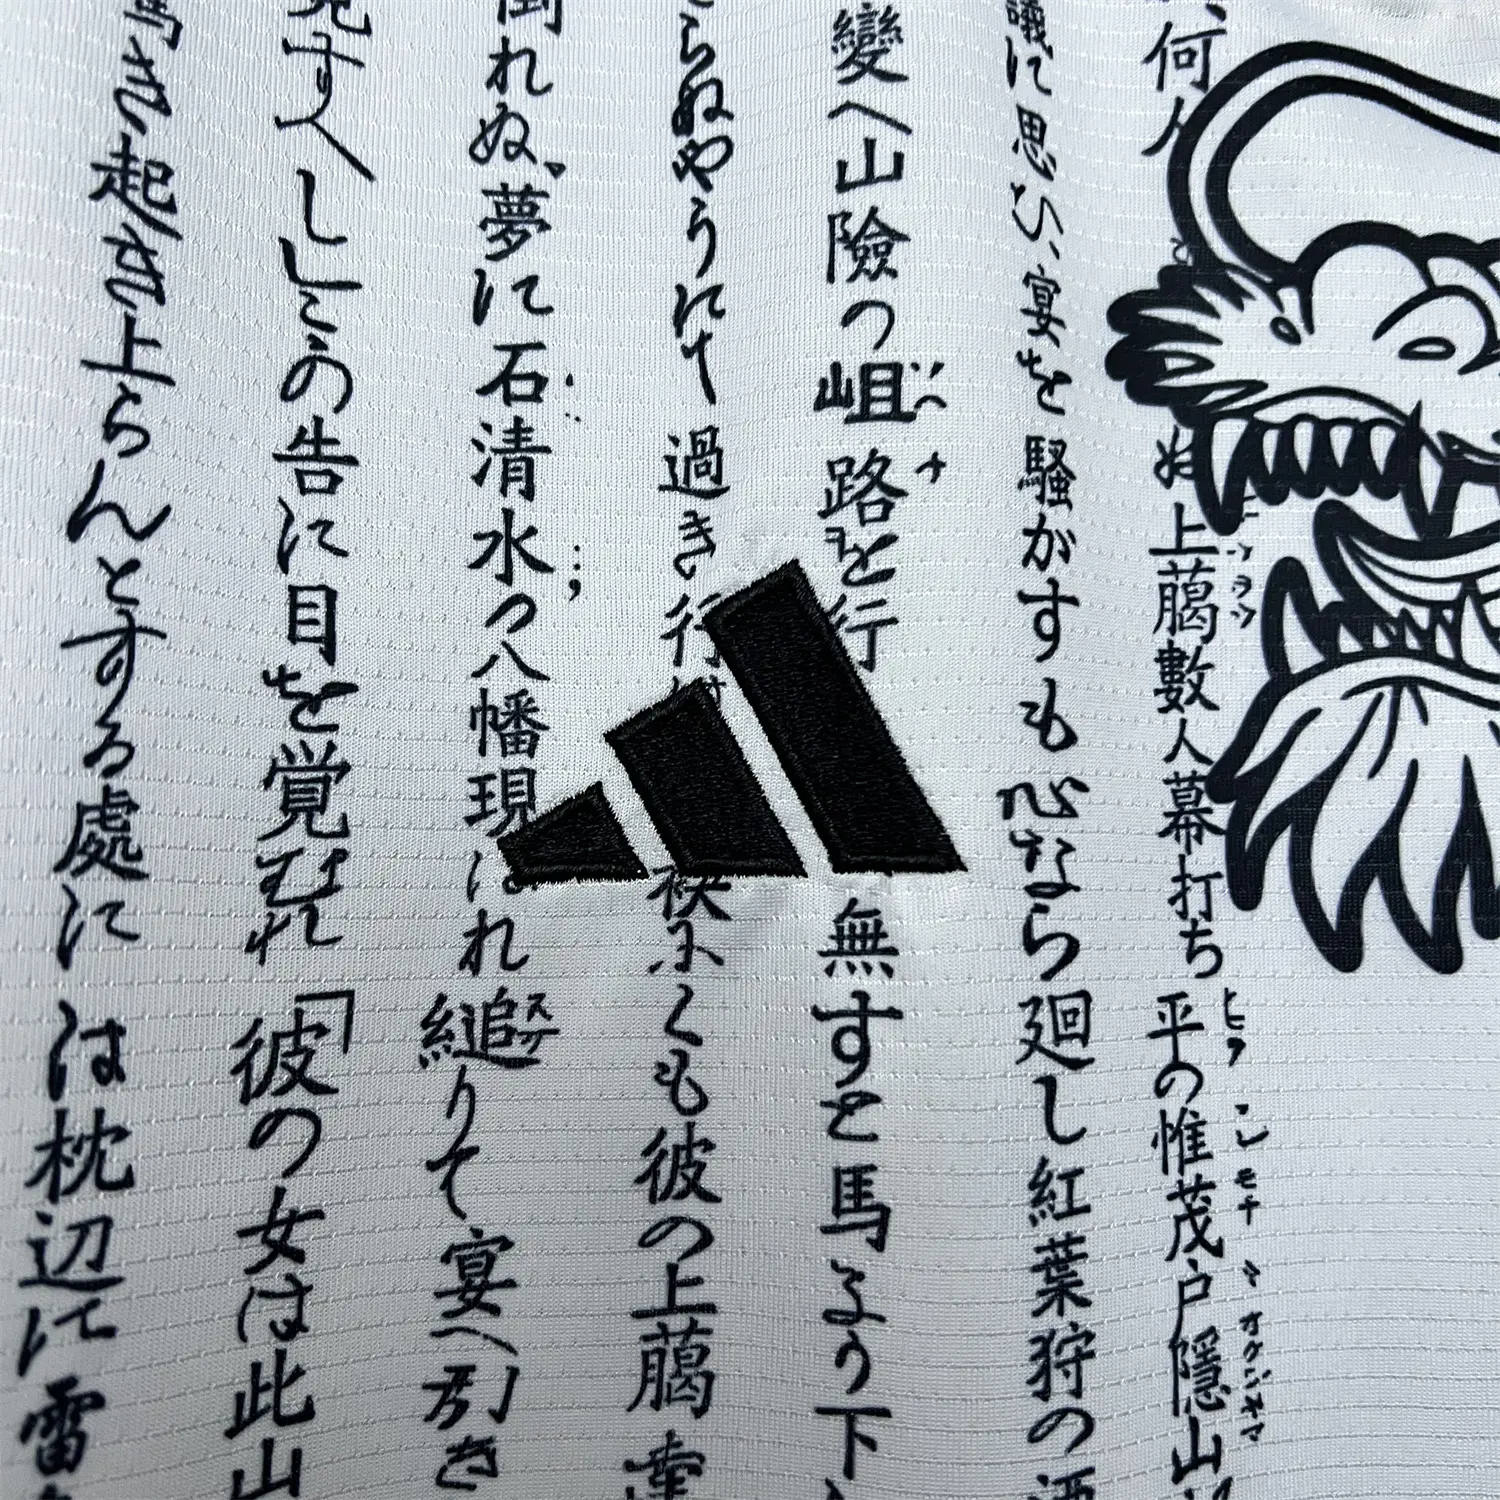 何人
ぬ上﨟數人幕打ち
平の惟茂戸隱山
議に思ひ、宴を騒がすも心なら
廻し紅葉狩の酒
變へ山險の岨路を行
無すと馬よう下
らぬやうにて過き行
くも彼の上﨟
倒れぬ、夢に石清水の八幡現
はれ縋りて宴へ引き
覚すへしこの告に目を覚むれ
「彼の女は此山
き起き上らんとする處に
は枕辺に雷